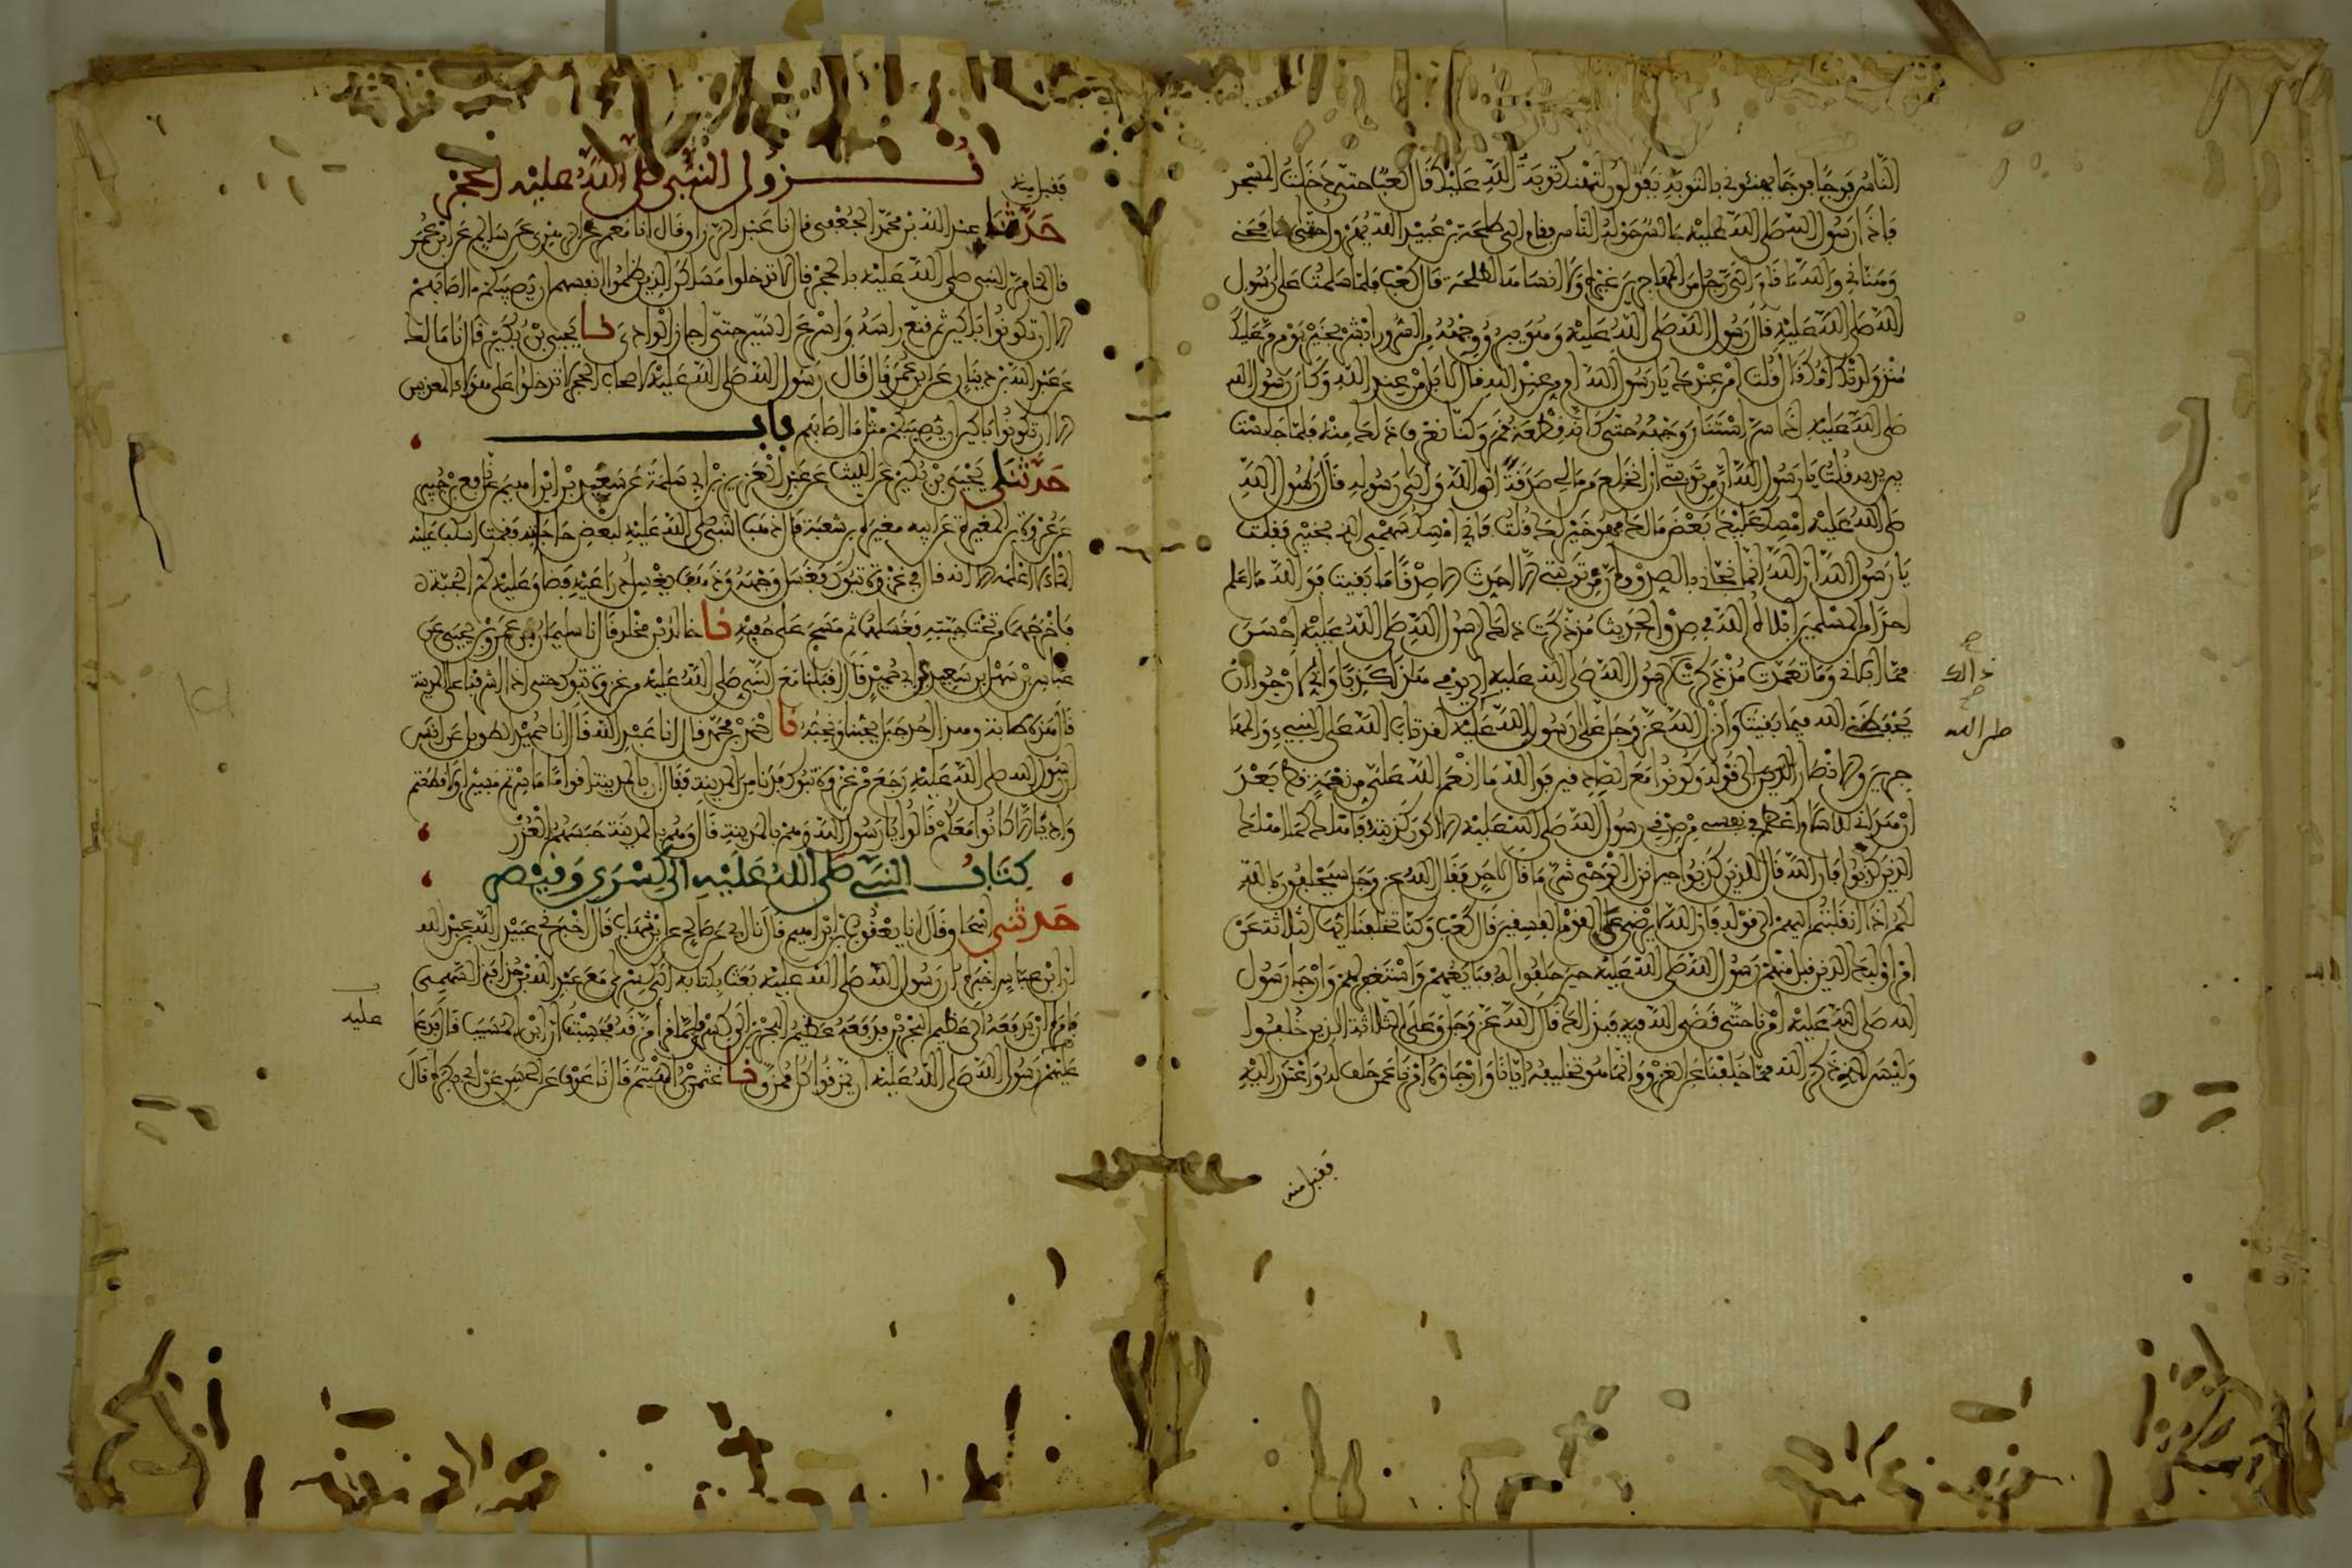 الناس فوجا فوجا يهنئونى بالتوبة يقولون لتهنك توبة الله عليك قال كعب حتى دخلت المسجد
فاذا رسول الله صلى الله عليه جالس حوله الناس فقام الى طلحة بن عبيد الله يهرول حتى صافحنى
وهنانى والله ما قام الى رجل من المهاجرين غيره ولا انساها لطلحة قال كعب فلما سلمت على رسول
الله صلى الله عليه قال رسول الله صلى الله عليه وهو يبرق وجهه من السرور ابشر بخير يوم مر عليك
منذ ولدتك امك قال قلت امن عندك يا رسول الله ام من عند الله قال لا بل من عند الله وكان رسول الله
صلى الله عليه اذا سر استنار وجهه حتى كانه قطعة قمر وكنا نعرف ذلك منه فلما جلست
بين يديه قلت يا رسول الله ان من توبتى ان انخلع من مالى صدقة الى الله والى رسوله قال رسول الله
صلى الله عليه امسك عليك بعض مالك فهو خير لك قلت فانى امسك سهمى الذى بخيبر فقلت
يا رسول الله ان الله انما نجانى بالصدق وان من توبتى الا احدث الا صدقا ما بقيت فوالله ما اعلم
احدا من المسلمين ابلاه الله فى صدق الحديث منذ ذكرت ذلك لرسول الله صلى الله عليه احسن
مما ابلانى وما تعمدت منذ ذكرت لرسول الله صلى الله عليه الى يومى هذا كذبا وانى لارجوا ان
يحفظنى الله فيما بقيت وانزل الله عز وجل على رسول الله عليه لقد تاب الله على النبىء والمها
جرين والانصار الذين الى قوله وكونوا مع الصادقين فوالله ما انعم الله على من نعمة قط بعد
ان هدانى للاسلام اعظم فى نفسى من صدقى رسول الله صلى الله عليه الا اكون كذبته فاهلك كما هلك
الذين كذبوا فان الله قال للذين كذبوا حين انزل الوحى شر ما قال لاحد فقال الله عز وجل سيحلفون بالله
لكم اذا انقلبتم اليهم الى قوله فان الله لا يرضى عن القوم الفاسقين قال كعب وكنا تخلفنا ايها الثلاثة عن
امر اوليك الذين قبل منهم رسول الله صلى الله عليه حين حلفوا له فبايعهم واستغفر لهم وارجا رسول
الله صلى الله عليه امرنا حتى قضى الله فيه فبذلك قال الله عز وجل وعلى الثلاثة الذين خلفوا
وليس الذى ذكر الله مما خلفنا عن الغزو وانما هو تخليفه ايانا وارجاؤه امرنا عمن حلف له واعتذر اليه
فقبل منه
ذالك
صلى الله
فقبل منه
نزول النبى صلى الله عليه الحجر
حدثنا عبد الله بن محمد الجعفى قال نا عبد الرزاق قال انا معمر عن الزهرى عن سالم عن ابن عمر
قال لما مر النبى صلى الله عليه بالحجر قال لا تدخلوا مساكن الذين ظلموا انفسهم ان يصيبكم ما اصابهم
الا ان تكونوا باكين ثم قنع راسه واسرع السير حتى اجاز الوادى نا يحيى بن بكير قال نا مالك
عن عبد الله بن دينار عن ابن عمر قال قال رسول الله صلى الله عليه لاصحاب الحجر لا تدخلوا على هؤلاء المعذبين
الا ان تكونوا باكين ان يصيبكم مثل ما اصابهم باب
حدثنا يحيى بن بكير عن الليث عن عبد العزيز بن ابى سلمة عن سعد بن ابراهيم عن نافع بن جبير
عن عروة بن المغيرة عن ابيه مغيرة بن شعبة قال ذهب النبى صلى الله عليه لبعض حاجاته فقمت اسكب عليه
الماء لا اعلمه الا انه قال فى غزوة تبوك فغسل وجهه وذهب يغسل ذراعيه فضاق عليه كم الجبة
فاخرجهما من تحت جبته فغسلهما ثم مسح على خفيه نا خالد بن مخلد قال نا سليمان عمرو بن يحيى عن
عباس بن سهل بن سعد عن ابى حميد قال اقبلنا مع النبى صلى الله عليه من غزوة تبوك حتى اذا اشرفنا على المدينة
قال هذه طابة وهذا احد جبل يحبنا ونحبه نا احمد بن محمد قال انا عبد الله قال انا حميد الطويل عن انس
ان رسول الله صلى الله عليه رجع من غزوة تبوك فدنا من المدينة فقال ان بالمدينة اقواما ما سرتم مسيرا ولا قطعتم
واديا الا كانوا معكم قالوا يا رسول الله وهم بالمدينة قال وهم بالمدينة حبسهم العذر
كتاب النبى صلى الله عليه الى كسرى وقيصر
حدثنى اسحاق قال نا يعقوب بن ابراهيم قال نا ابى عن صالح عن ابن شهاب قال اخبرنى عبيد الله بن عبد الله
ان ابن عباس اخبره ان رسول الله صلى الله عليه بعث بكتابه الى كسرى مع عبد الله بن حذافة السهمى
فامره ان يدفعه الى عظيم البحرين فدفعه عظيم البحرين الى كسرى فلما قراه مزقه فحسبت ان ابن المسيب قال فدعا
عليهم رسول الله صلى الله عليه ان يمزقوا كل ممزق نا عثمن بن الهيثم قال نا عوف عن الحسن عن ابى بكرة قال
عليه